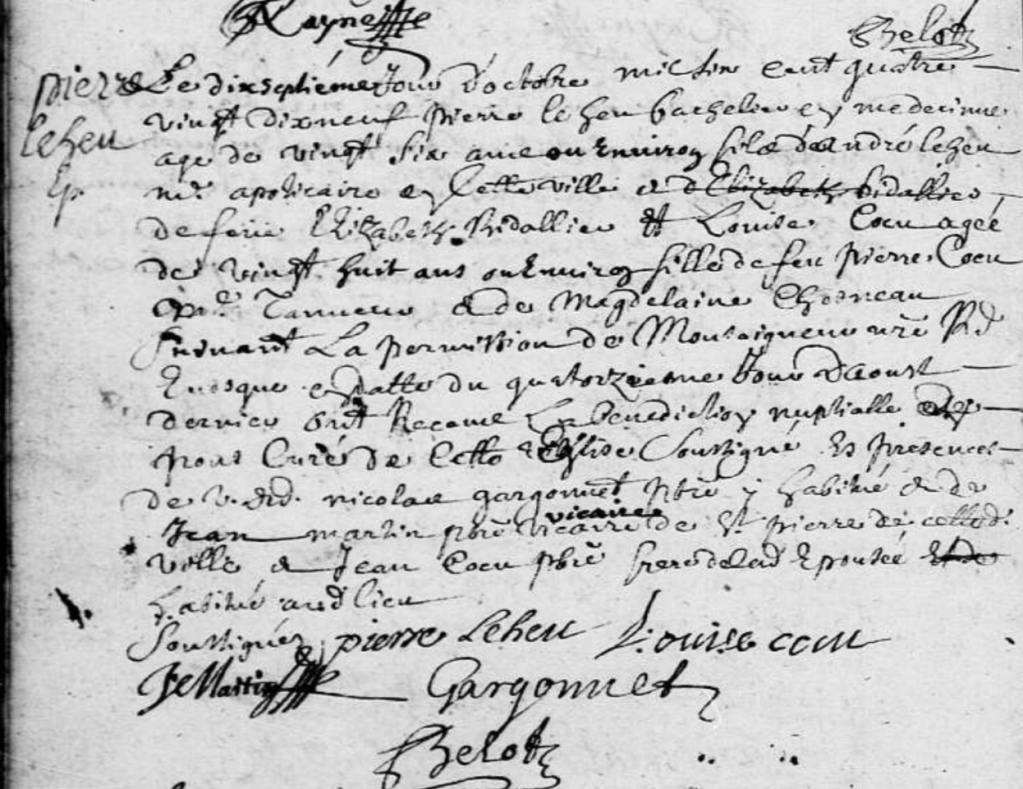 Belot
pierre
leheu
Le dixseptiéme Jour d'octobre mil six cent quatre
vingt dixneuf pierre leheu bachelier en medecinne
agé de vingt six ans ou Environ fils d'andré leheu
mr apoticaire en Cette ville & d'Elizabeth bidallier
de feüe Elizabeth bidallier et Louise Cocu agée
de vingt huit ans ou Environ fille de feu pierre Cocu
mr Tanneur & de Magdelaine
Suivant La permission de Monseigneur nre
Evesque en datte du quatorzieme Jour d'aoust
dernier ont Receue La benediction nuptialle
nous Curé de Cette Eglise Soussigné Es presences
de nicolas gargonnet pbre habitué & de
Jean martin pbre vicaire vicaire de St pierre de cette d.
ville & Jean Cocu pbre frere de lad Epousée
habitué aud lieu
Soussignez pierre Leheu Louise cocu
J Martin Gargonnet
Belot